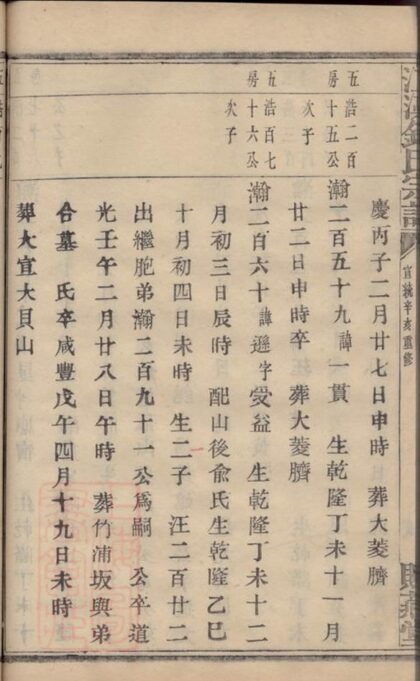 宣統辛亥重修
慶丙子二月廿七日申時　葬大菱臍
五浩二百
房十五公
次子
瀚二百五十九諱一貫　生乾隆丁未十一月
廿二日申時卒　葬大菱臍
五浩百七
房十六公
次子
瀚二百六十諱遜字受益　生乾隆丁未十二
月初三日辰時　配山後俞氏生乾隆乙巳
十月初四日未時　生二子　汪二百廿二
出繼胞弟瀚二百九十一公爲嗣　公卒道
光壬午二月廿八日午時　葬竹浦坂與弟
合墓　氏卒咸豐戊午四月十九日未時
葬大宜大貝山